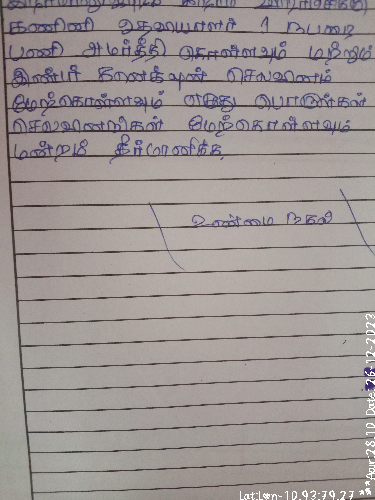 கணினி உதவியாளர் 1 நபரை
பணி அமர்த்தி கொள்ளவும் மற்றும்
செலவினம்
மேற்கொள்ளவும் எனது பொருள்கள்
செலவினங்கள் மேற்கொள்ளவும்
மன்றம் தீர்மானிக்க
உண்மை நகல்
Lat:Lon-10.93:79.27 ***Acur:28.10 Date: 26-12-2023